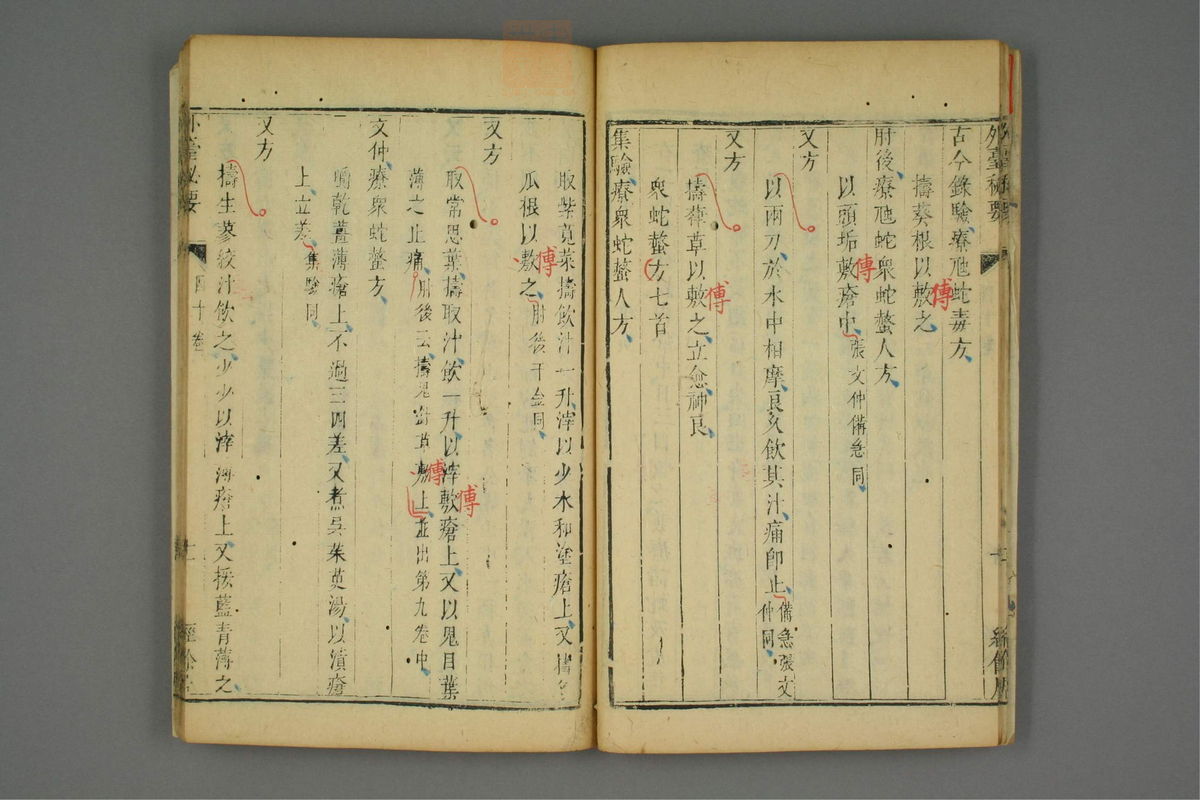 外臺秘要
古今錄驗療虺蛇毒方
擣葵根以敷之
傅
肘後療虺蛇衆蛇螫人方
以頭垢敷瘡中張文仲備急同
傅
又方
以兩刀於水中相摩良久飲其汁痛即止備急張文仲同
又方
擣葎草以敷之立愈神良
傅
衆蛇螫方七首
集驗療衆蛇螫人方
取紫莧菜擣飲汁一升滓以少水和塗瘡上又擣
瓜根以敷之肘後千金同
傅
又方
取常思葉擣取汁飲一升以滓敷瘡上又以鬼目葉
傅
薄之止痛肘後云擣鬼針草敷上並出第九卷中
傅
文仲療衆蛇螫方
嚼乾薑薄瘡上不過三四差又煮吳茱萸湯以漬瘡
上立差集驗同
又方
擣生蓼絞汁飲之少少以滓薄瘡上又挼藍青薄之
外臺秘要
四十卷